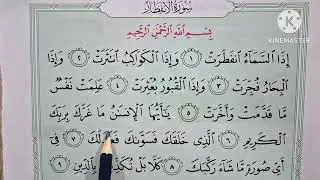 سُورَةُ الِانفِطَارِ
بِسْمِ اللَّهِ الرَّحْمَٰنِ الرَّحِيمِ
إِذَا السَّمَاءُ انفَطَرَتْ ١ وَإِذَا الْكَوَاكِبُ انتَثَرَتْ ٢ وَإِذَا
الْبِحَارُ فُجِّرَتْ ٣ وَإِذَا الْقُبُورُ بُعْثِرَتْ ٤ عَلِمَتْ نَفْسٌ
مَّا قَدَّمَتْ وَأَخَّرَتْ ٥ يَٰأَيُّهَا الْإِنسَٰنُ مَا غَرَّكَ بِرَبِّكَ
الْكَرِيمِ ٦ الَّذِي خَلَقَكَ فَسَوَّىٰكَ فَعَدَلَكَ ٧ فِي
أَيِّ صُورَةٍ مَّا شَاءَ رَكَّبَكَ ٨ كَلَّا بَلْ تُكَذِّبُونَ بِالدِّينِ ٩
MADE WITH
KINEMASTER